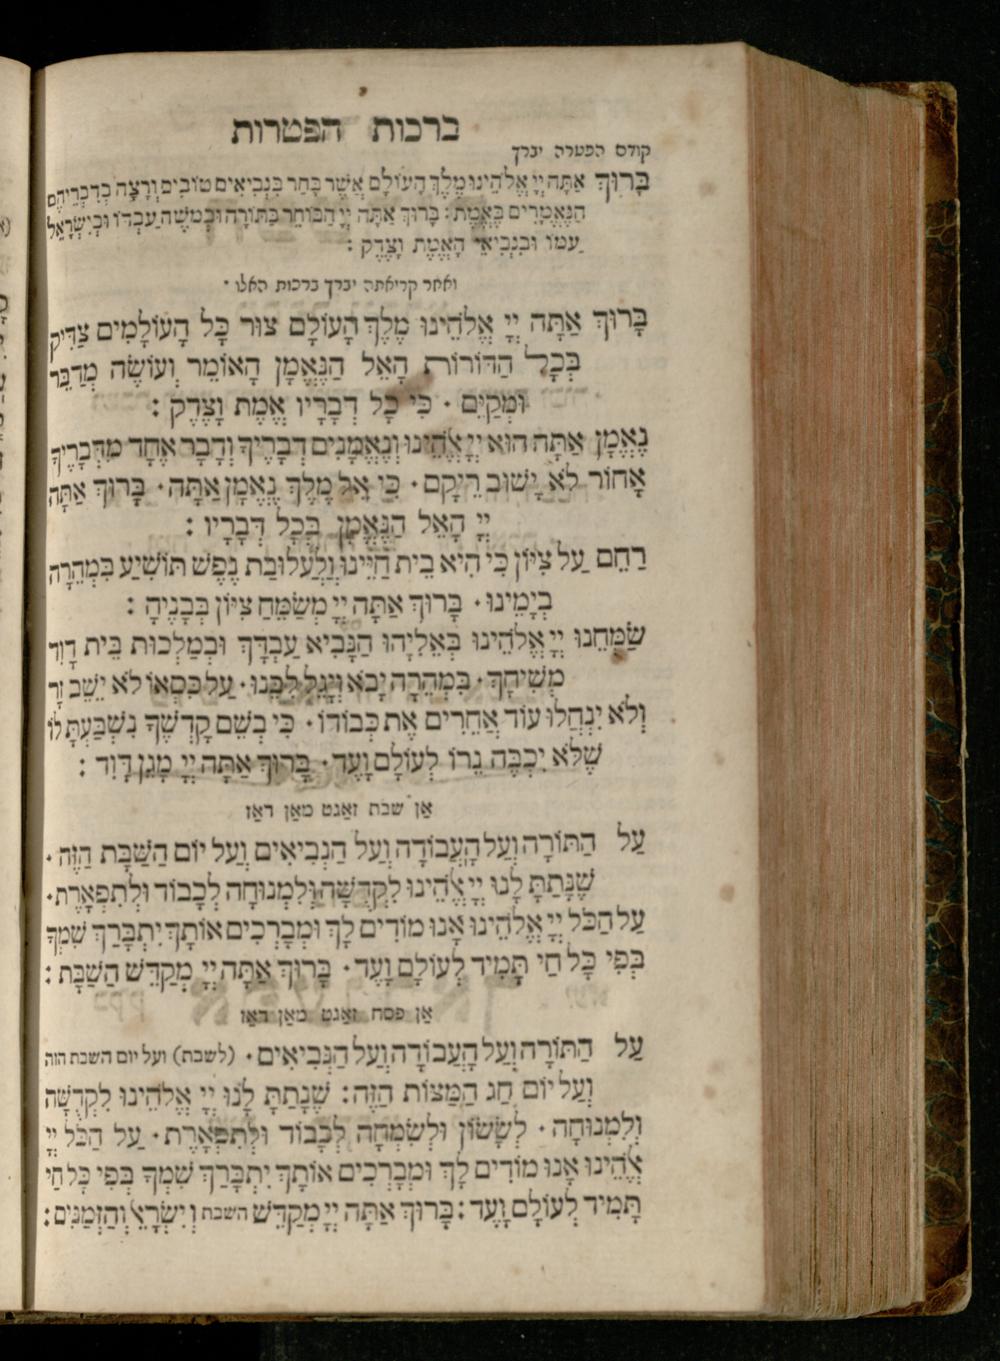 ברכות הפטרות
קודם הפטרה יברך
בָּרוּךְ אַתָּה יְיָ אֱלֹהֵינוּ מֶלֶךְ הָעוֹלָם אֲשֶׁר בָּחַר בִּנְבִיאִים טוֹבִים וְרָצָה בְדִבְרֵיהֶם
הַנֶּאֱמָרִים בֶּאֱמֶת: בָּרוּךְ אַתָּה יְיָ הַבּוֹחֵר בַּתּוֹרָה וּבְמשֶׁה עַבְדּוֹ וּבְיִשְׂרָאֵל
עַמּוֹ וּבִנְבִיאֵי הָאֱמֶת וָצֶדֶק :
ואחר קריאתה יברך ברכות האלו ·
בָּרוּךְ אַתָּה יְיָ אֱלֹהֵינוּ מֶלֶךְ הָעוֹלָם צוּר כָּל הָעוֹלָמִים צַדִּיק
בְּכָל הַדּוֹרוֹת הָאֵל הַנֶּאֱמָן הָאוֹמֵר וְעוֹשֶׂה מְדַבֵּר
וּמְקַיֵּם · כִּי כָּל דְּבָרָיו אֱמֶת וָצֶדֶק :
נֶאֱמָן אַתָּה הוּא יְיָ אֱלֹהֵינוּ וְנֶאֱמָנִים דְּבָרֶיךָ וְדָבָר אֶחָד מִדְּבָרֶיךָ
אָחוֹר לֹא יָשׁוּב רֵיקָם · כִּי אֵל מֶלֶךְ נֶאֱמָן אַתָּה · בָּרוּךְ אַתָּה
יְיָ הָאֵל הַנֶּאֱמָן בְּכָל דְּבָרָיו :
רַחֵם עַל צִיּוֹן כִּי הִיא בֵית חַיֵּינוּ וְלַעֲלוּבַת נֶפֶשׁ תּוֹשִׁיעַ בִּמְהֵרָה
בְיָמֵינוּ · בָּרוּךְ אַתָּה יְיָ מְשַׂמֵּחַ צִיּוֹן בְּבָנֶיהָ :
שַׂמְּחֵנוּ יְיָ אֱלֹהֵינוּ בְּאֵלִיָּהוּ הַנָּבִיא עַבְדֶּךָ וּבְמַלְכוּת בֵּית דָּוִד
מְשִׁיחֶךָ · בִּמְהֵרָה יָבֹא וְיָגֵל לִבֵּנוּ · עַל כִּסְאוֹ לֹא יֵשֵׁב זָר
וְלֹא יִנְחֲלוּ עוֹד אֲחֵרִים אֶת כְּבוֹדוֹ · כִּי בְשֵׁם קָדְשְׁךָ נִשְׁבַּעְתָּ לּוֹ
שֶׁלֹּא יִכְבֶּה נֵרוֹ לְעוֹלָם וָעֶד · בָּרוּךְ אַתָּה יְיָ מָגֵן דָּוִד :
אַן שבת זאַגט מאַן דאַז
עַל הַתּוֹרָה וְעַל הָעֲבוֹדָה וְעַל הַנְּבִיאִים וְעַל יוֹם הַשַּׁבָּת הַזֶּה ·
שֶׁנָּתַתָּ לָנוּ יְיָ אֱלֹהֵינוּ לִקְדֻשָּׁה וְלִמְנוּחָה לְכָבוֹד וּלְתִפְאָרֶת ·
עַל הַכֹּל יְיָ אֱלֹהֵינוּ אָנוּ מוֹדִים לָךְ וּמְבָרְכִים אוֹתָךְ יִתְבָּרַךְ שִׁמְךָ
בְּפִי כָּל חַי תָּמִיד לְעוֹלָם וָעֶד · בָּרוּךְ אַתָּה יְיָ מְקַדֵּשׁ הַשַּׁבָּת :
אַן פסח זאַגט מאַן דאַז
עַל הַתּוֹרָה וְעַל הָעֲבוֹדָה וְעַל הַנְּבִיאִים · (לשבת) ועל יום השבת הזה
וְעַל יוֹם חַג הַמַּצּוֹת הַזֶּה: שֶׁנָּתַתָּ לָנוּ יְיָ אֱלֹהֵינוּ לִקְדֻשָּׁה
וְלִמְנוּחָה · לְשָׂשׂוֹן וּלְשִׂמְחָה לְכָבוֹד וּלְתִפְאָרֶת · עַל הַכֹּל יְיָ
אֱלֹהֵינוּ אָנוּ מוֹדִים לָךְ וּמְבָרְכִים אוֹתָךְ יִתְבָּרַךְ שִׁמְךָ בְּפִי כָּל חַי
תָּמִיד לְעוֹלָם וָעֶד : בָּרוּךְ אַתָּה יְיָ מְקַדֵּשׁ השבת וְיִשְׂרָאֵל וְהַזְּמַנִּים :